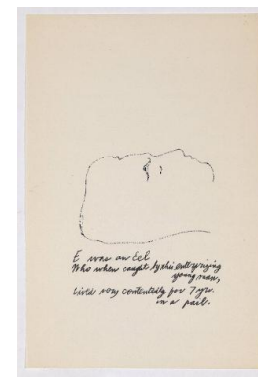 E was an Eel
Who when caught by this enterprizing
young man,
lived very contentedly for 7 yrs.
in a pail.